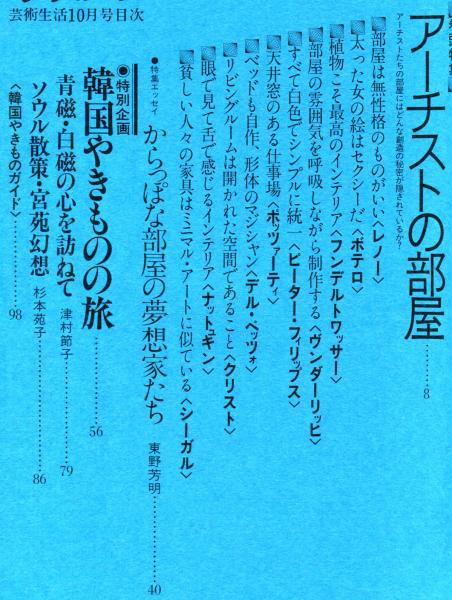 芸術生活10月号目次
アーチストの部屋………8
アーチストたちの部屋にはどんな創造の秘密が隠されているか?
部屋は無性格のものがいい〈レノー〉
太った女の絵はセクシーだ〈ボテロ〉
植物こそ最高のインテリア〈フンデルトワッサー〉
部屋の雰囲気を呼吸しながら制作する〈ヴンダーリッヒ〉
すべて白色でシンプルに統一〈ピーター・フィリップス〉
天井窓のある仕事場〈ポッツァーティ〉
ベッドも自作、形体のマジシャン〈デル・ペッツォ〉
リビングルームは開かれた空間であること〈クリスト〉
眼で見て舌で感じるインテリア〈ナットキン〉
貧しい人々の家具はミニマル・アートに似ている〈シーガル〉
●特集エッセイ
からっぽな部屋の夢想家たち 東野芳明………40
●特別企画
韓国やきものの旅………56
青磁・白磁の心を訪ねて 津村節子………79
ソウル散策・宮苑幻想 杉本苑子………86
〈韓国やきものガイド〉………98